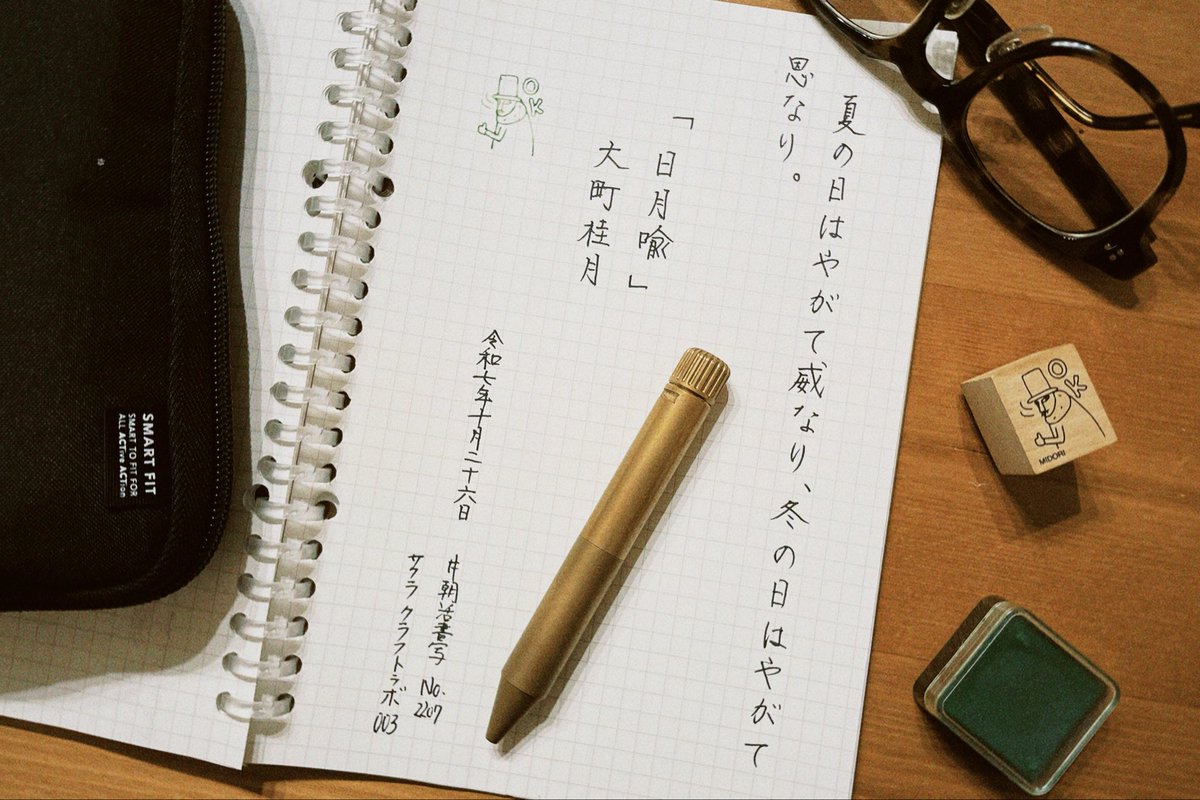 夏の日はやがて威なり、冬の日はやがて
思なり。
「日月喩」
大町桂月
令和七年十月二十六日
#朝活書写 No. 2207
サクラ クラフトラボ 003
OK
OK
MIDORI
SMART FIT
SMART TO FIT FOR
ALL ACTive ACTion